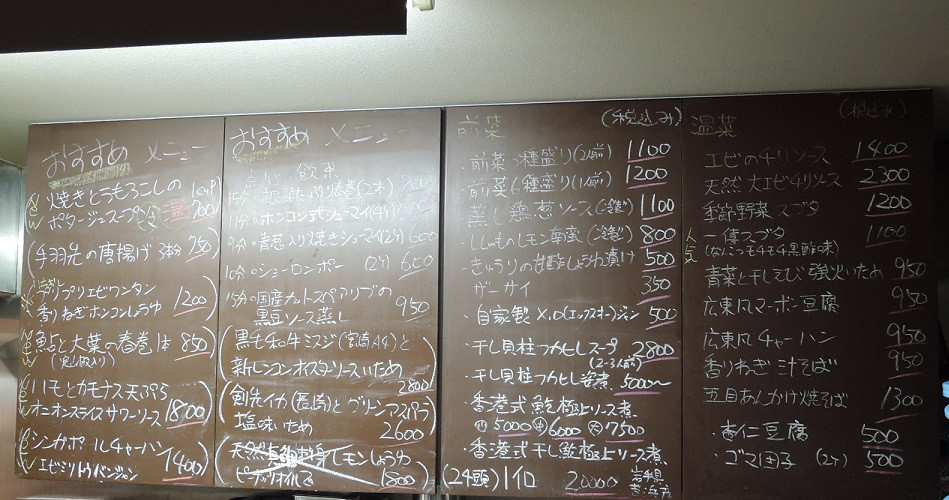 おすすめ メニュー
焼きとうもろこしの
ポタージュスープ 冷 温 700
手羽先の唐揚げ 3本 750
プリプリエビワンタン
香りねぎホンコンしょうゆ 1200
魚点と大葉の春巻 850
ハモとカモナス天ぷら
オニオンスライスサワーソース 1800
シンガポールチャーハン
1400
おすすめ メニュー
点心 飲茶
15分
ホンコン式シューマイ
9分 青葱入り焼きシューマイ 600
10分 ショーロンポー 600
15分 国産カットスペアリブの 950
黒豆ソース蒸し
黒毛和牛ミスジ (宮崎A4)と
新レンコンオイスターソースいため
2800
剣先イカ (長崎)とグリーンアスパラ
塩味いため
2600
レモンしょうゆ
1800
前菜 (税込み)
・前菜3種盛り(2人前) 1100
・前菜6種盛り(1人前) 1200
・蒸し鶏葱ソース(冷製) 1100
・ししゃものレモン南蛮(冷製) 800
・きゅうりの甘酢しょうゆ漬け 500
・ザーサイ 350
・自家製 X.O(エックスオー)ジャン 500
・干し貝柱フカヒレスープ 2800
(2~3人前)
・干し貝柱フカヒレ姿煮 5000~
・香港式鮑極上ソース煮
小5000 中6000 大7500
・香港式干し鮑極上ソース煮
(24頭) 1個 20000 岩手県
吉浜産
温菜 (税込み)
エビのチリソース 1400
天然大エビチリソース 2300
季節野菜スブタ 1200
人気
一億スブタ 1100
(なんこつもモチモチ黒酢味)
青菜と干しエビ強火いため 950
広東風マーボー豆腐 950
広東風チャーハン 950
香りねぎ汁そば 950
五目あんかけ焼そば 1300
・杏仁豆腐 500
・ゴマ団子 (2ケ) 500